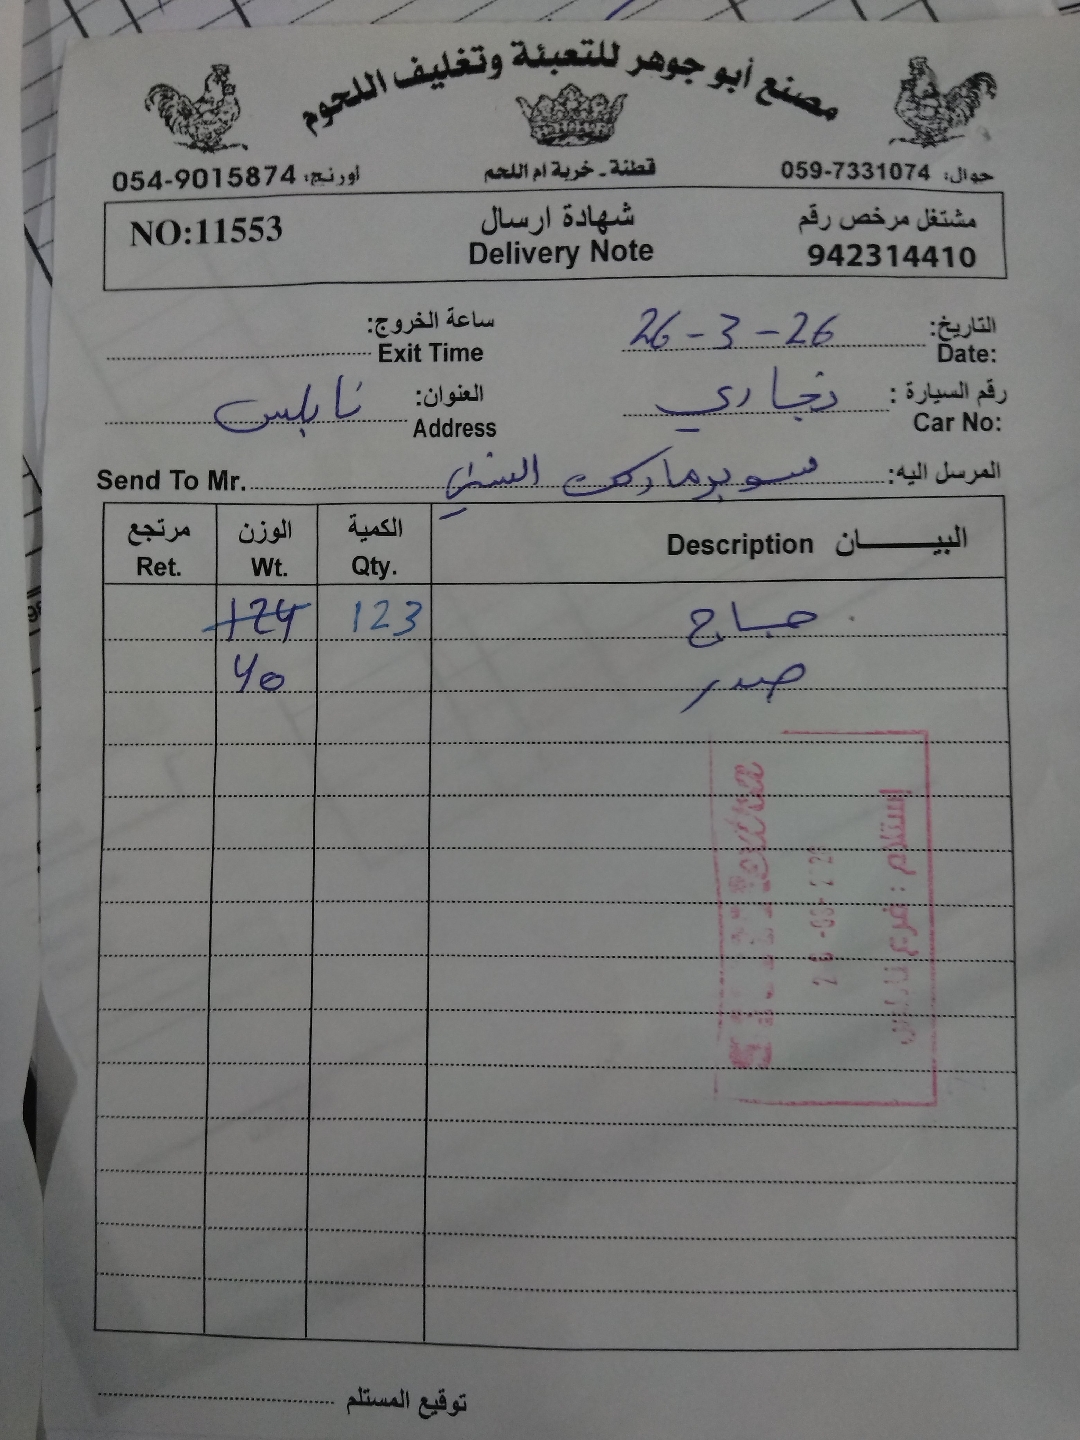 مصنع أبو جوهر للتعبئة وتغليف اللحوم
حوال: 059-7331074
قطنة - خربة ام اللحم
اورنج: 054-9015874
مشتغل مرخص رقم
942314410
شهادة ارسال
Delivery Note
NO:11553
التاريخ: 26-3-26
Date:
ساعة الخروج:
Exit Time
رقم السيارة : تجاري
Car No:
العنوان: نابلس
Address
المرسل اليه: سوبرماركت Send To Mr.
البيـــــــــان Description
الكمية
Qty.
الوزن
Wt.
مرتجع
Ret.
123 124
صدر 40
إستلام : فرع نابلس
توقيع المستلم